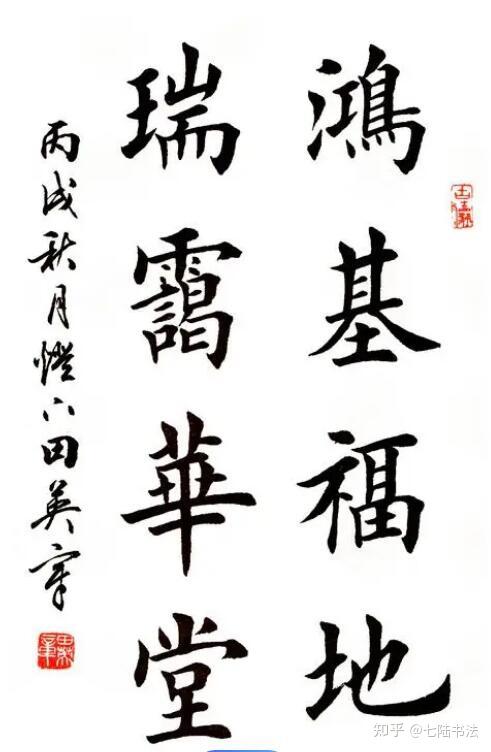 鴻基福地
瑞靄華堂
丙戌秋月燈下田英章
知乎 @七陆书法